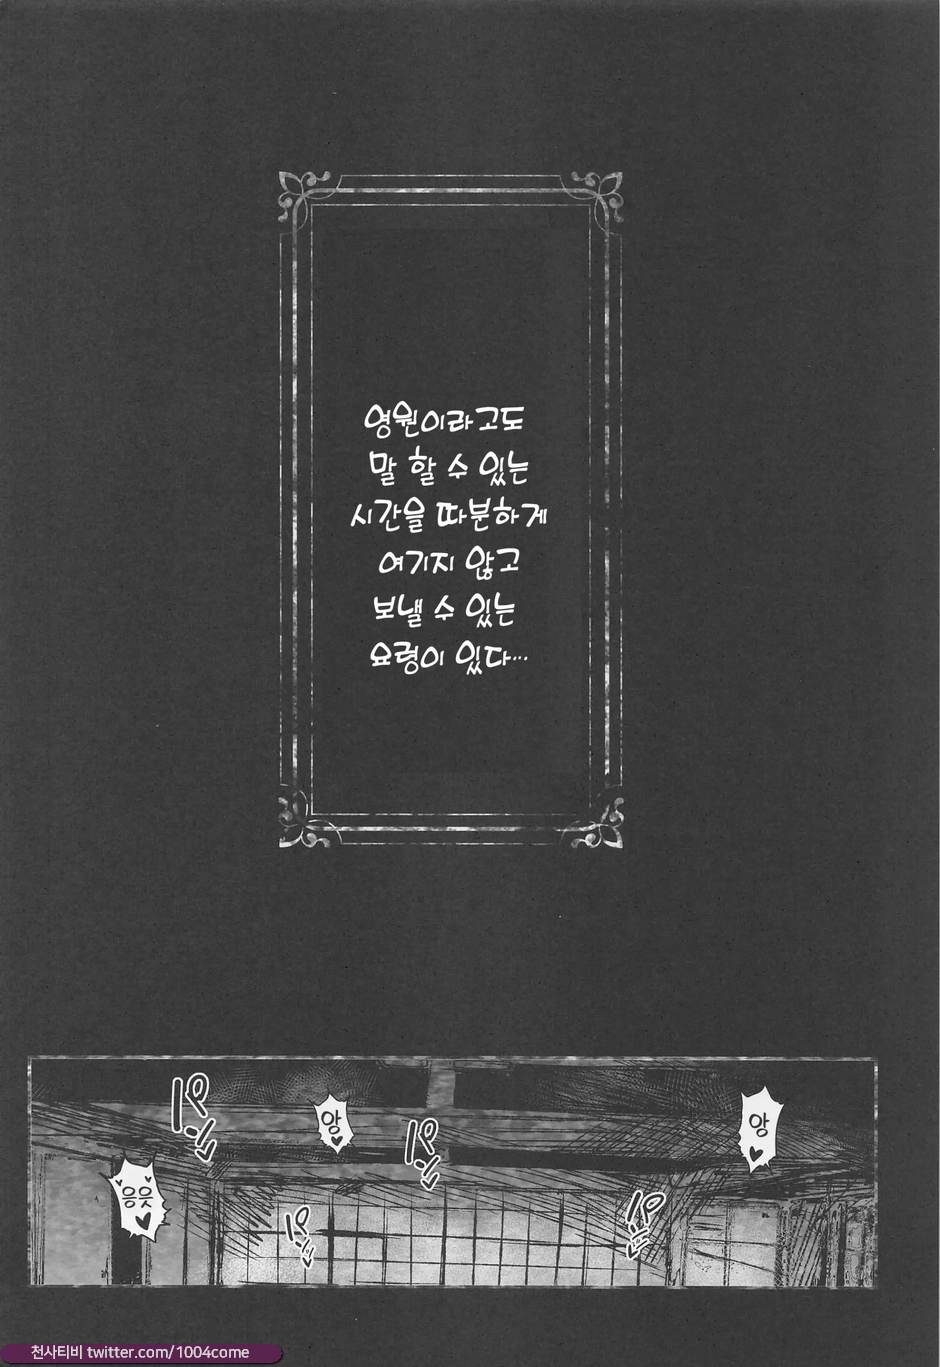 영원이라고도
말 할 수 있는
시간을 따분하게
여기지 않고
보낼 수 있는
요령이 있다…
앙♥
앙♥
응읏♥
천사티비 twitter.com/1004come